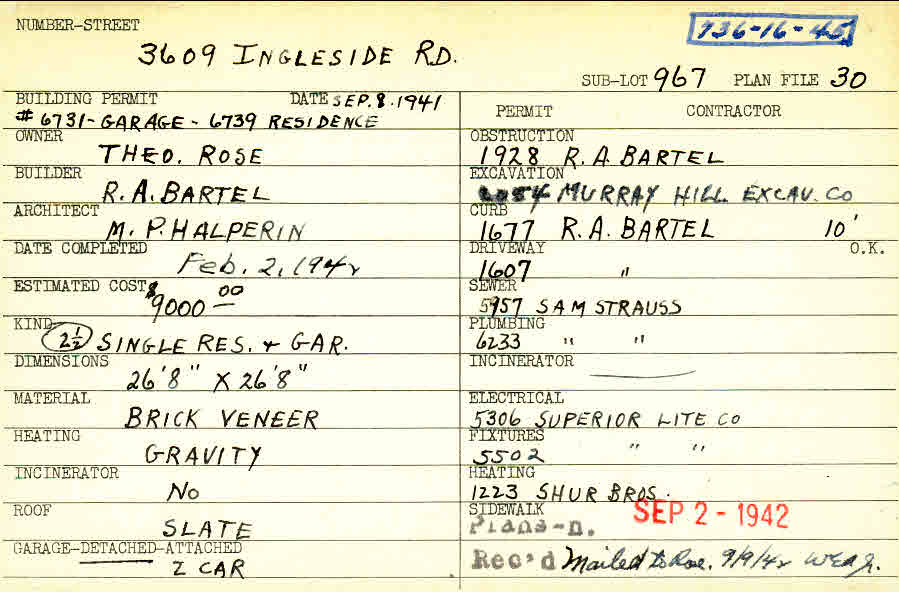 NUMBER-STREET
736-16-45
3609 INGLESIDE RD.
SUB-LOT 967 PLAN FILE 30
BUILDING PERMIT DATE SEP. 8. 1941
# 6731- GARAGE - 6739 RESIDENCE
OWNER
THEO. ROSE
BUILDER
R. A. BARTEL
ARCHITECT
M. P. HALPERIN
DATE COMPLETED
Feb. 2, 1942
ESTIMATED COST
$9000 00
KIND
2 1/2 SINGLE RES. + GAR.
DIMENSIONS
26'8" X 26'8"
MATERIAL
BRICK VENEER
HEATING
GRAVITY
INCINERATOR
No
ROOF
SLATE
GARAGE-DETACHED-ATTACHED
2 CAR
PERMIT CONTRACTOR
OBSTRUCTION
1928 R. A. BARTEL
EXCAVATION
MURRAY HILL EXCAV. CO
CURB
1677 R. A. BARTEL 10'
DRIVEWAY O.K.
1607 "
SEWER
5957 SAM STRAUSS
PLUMBING
6233 " "
INCINERATOR
ELECTRICAL
5306 SUPERIOR LITE CO
FIXTURES
5502 " "
HEATING
1223 SHUR BROS.
SIDEWALK
SEP 2 - 1942
Plans-n.
Rec'd Mailed to 9/9/42